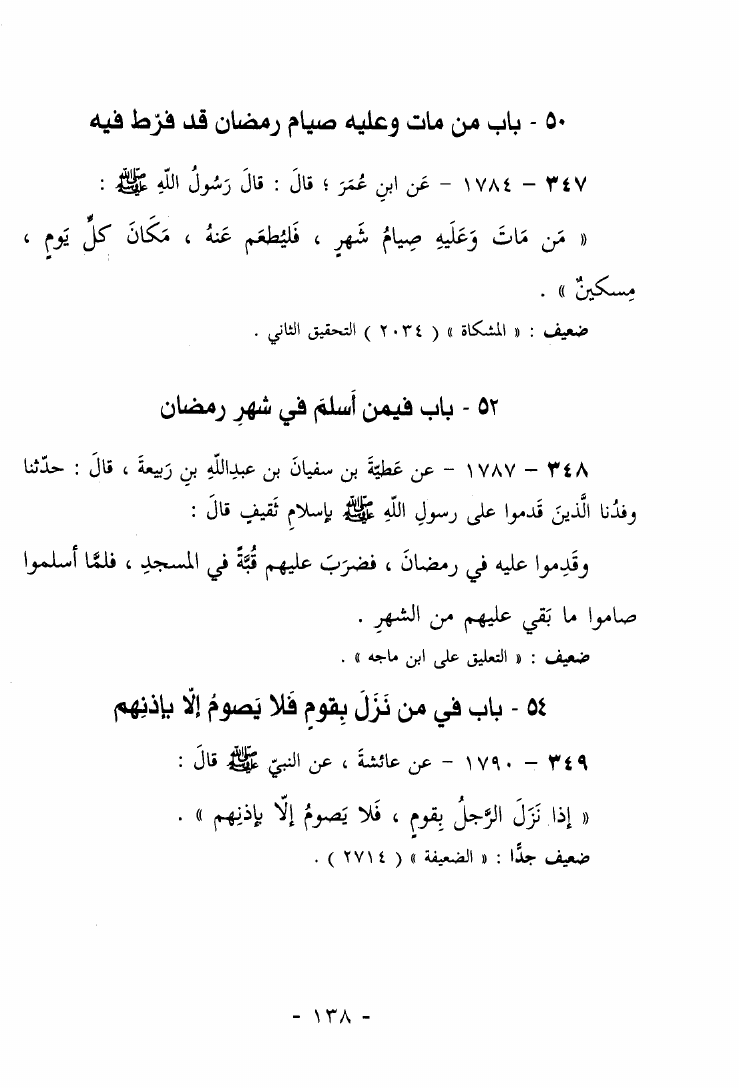 ٥٠ - باب من مات وعليه صيام رمضان قد فرّط فيه
٣٤٧ - ١٧٨٤ - عَن ابنِ عُمَرَ ؛ قالَ : قالَ رَسُولُ اللّهِ ﷺ :
« مَن مَاتَ وَعَلَيهِ صِيامُ شَهرٍ ، فَليُطعَم عَنهُ ، مَكَانَ كلِّ يَومٍ ،
مِسكينٌ » .
ضعيف : « المشكاة » ( ٢٠٣٤ ) التحقيق الثاني .
٥٢ - باب فيمن أَسلمَ في شهرِ رمضان
٣٤٨ - ١٧٨٧ - عن عَطيّةَ بن سفيانَ بن عبدِاللّهِ بنِ رَبيعةَ ، قالَ : حدّثنا
وفدُنا الَّذينَ قَدموا على رسولِ اللّهِ ﷺ بإسلامِ ثَقيفٍ قالَ :
وقَدِموا عليه في رمضانَ ، فضرَبَ عليهم قُبَّةً في المسجدِ ، فلمَّا أسلموا
صاموا ما بَقي عليهم من الشهرِ .
ضعيف : « التعليق على ابن ماجه » .
٥٤ - باب في من نَزَلَ بِقومٍ فَلا يَصومُ إلّا بإذنِهم
٣٤٩ - ١٧٩٠ - عن عائشةَ ، عن النبيّ ﷺ قالَ :
« إذا نَزَلَ الرَّجلُ بِقومٍ ، فَلا يَصومُ إلّا بإذنِهم » .
ضعيف جدًّا : « الضعيفة » ( ٢٧١٤ ) .
- ١٣٨ -